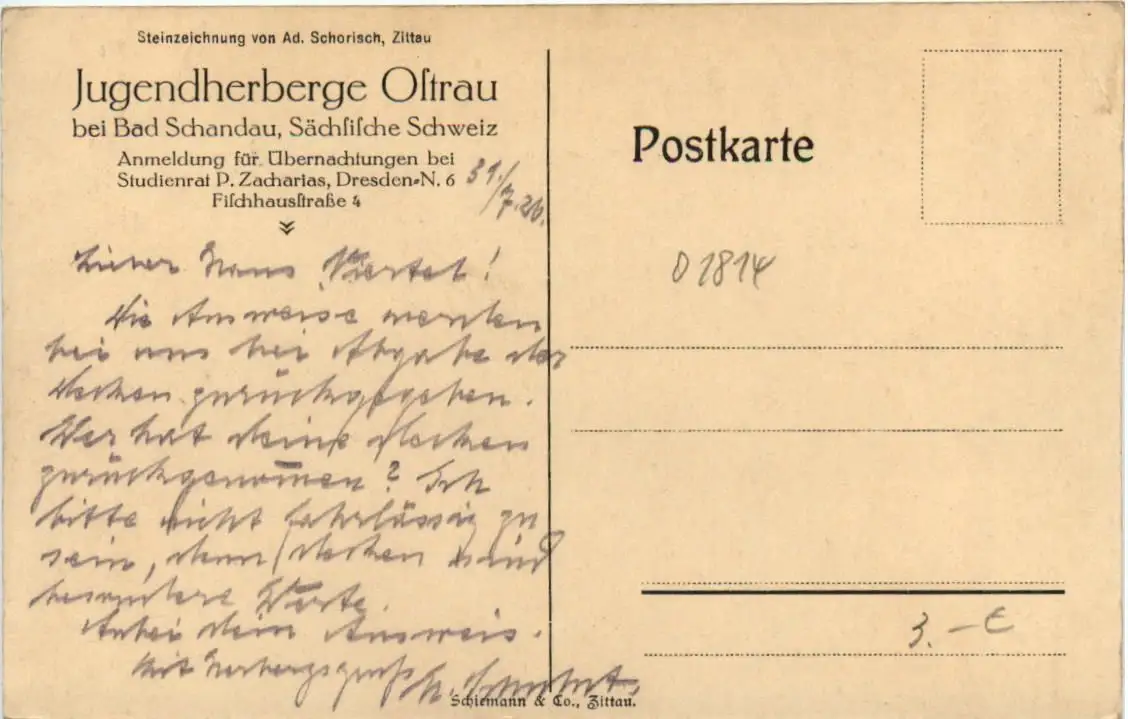 Steinzeichnung von Ad. Schorisch, Zittau
Jugendherberge Oſtrau
bei Bad Schandau, Sächſiſche Schweiz
Anmeldung für Übernachtungen bei
Studienrat P. Zacharias, Dresden-N. 6
Fiſchhausſtraße 4
31./7.26.
Lieber Hans Viertel!
Die Ausweise werden
bei uns bei Abgabe der
Decken zurückgegeben.
Wer hat deine Decken
zurückgenom̅en? Ich
bitte nicht fahrlässig zu
sein, denn Decken sind
besondere Werte.
Anbei dein Ausweis.
Mit Herbergsgruß
Postkarte
01814
3.-€
Schiemann & Co., Zittau.